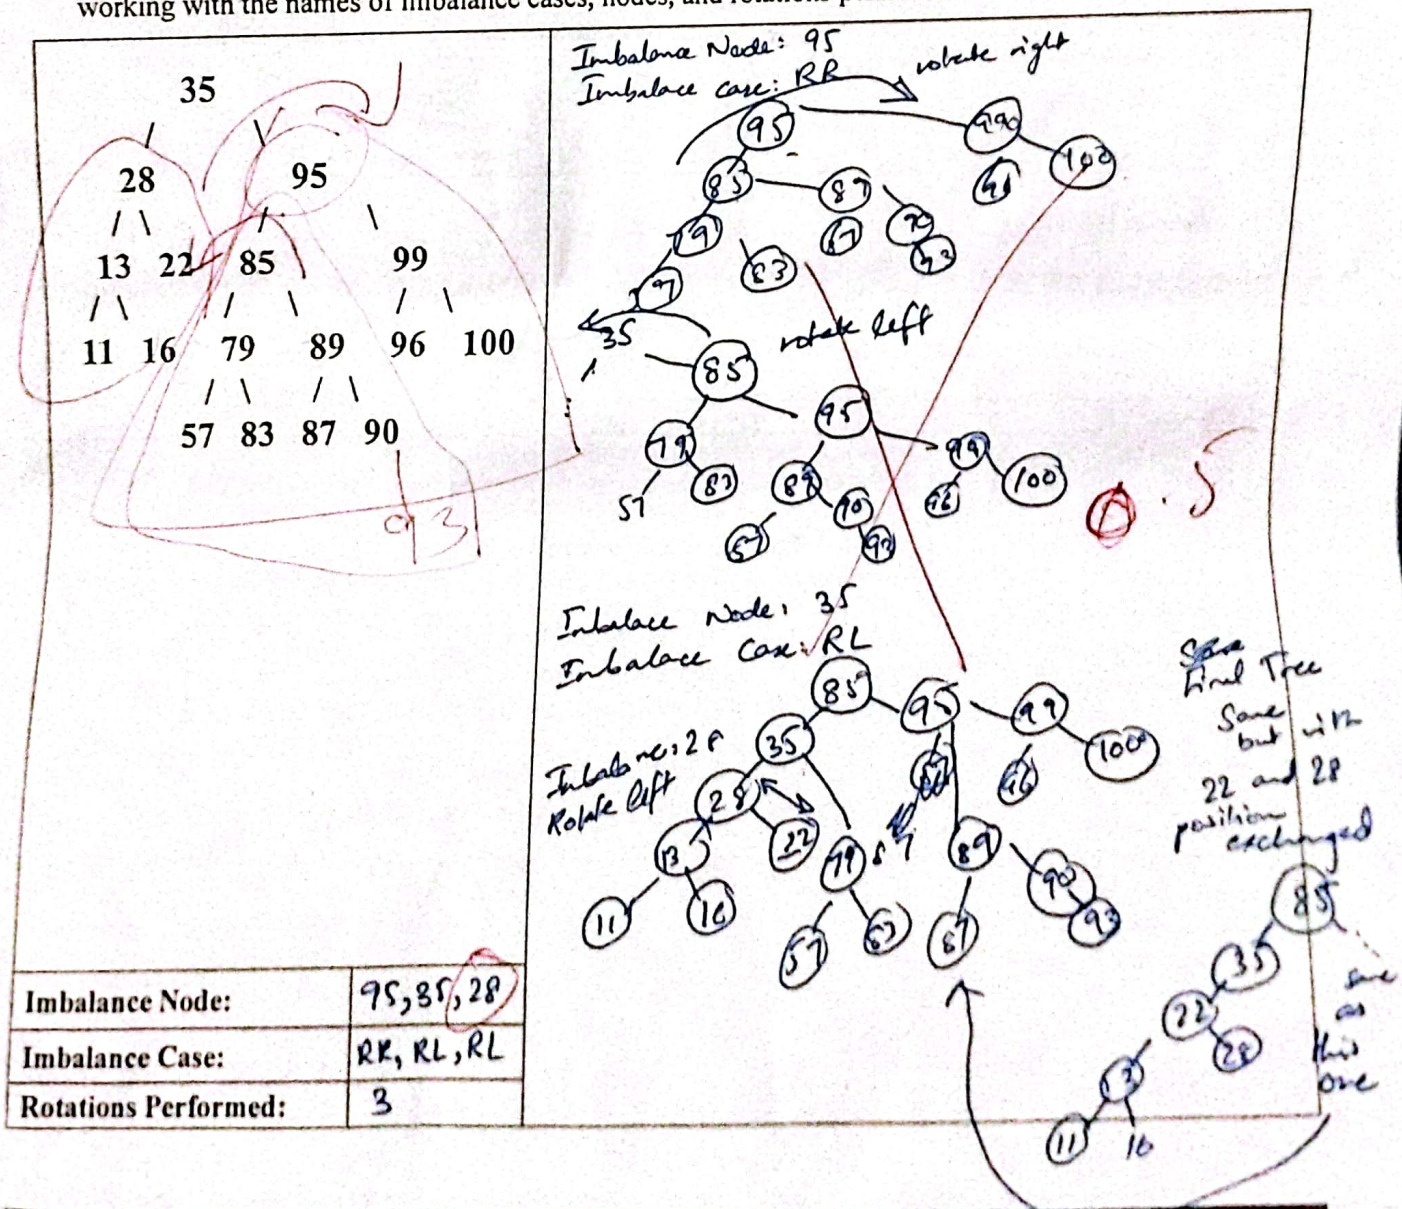 working with the names of imbalance cases, nodes, and rotations
35
28 95
13 22 85 99
11 16 79 89 96 100
57 83 87 90
93
Imbalance Node: 95,35,28
Imbalance Case: RR, RL, RL
Rotations Performed: 3
Imbalance Node: 95
Imbalace case: RR
rotate right
95 99 100
85 89
79
83
35
rotate left
85
95
79 99
83 89 96 100
57 90
93
0.5
Inbalace Node: 35
Inbalace Case: RL
85 95 99
35 100
Inbalane: 28
Rotate left
28 96
13 22 79 89
11 16 90 93
57 87
Final Tree
Same
but with
22 and 28
position
exchanged
85
35
22
28
13
11 16
same
as
this
one